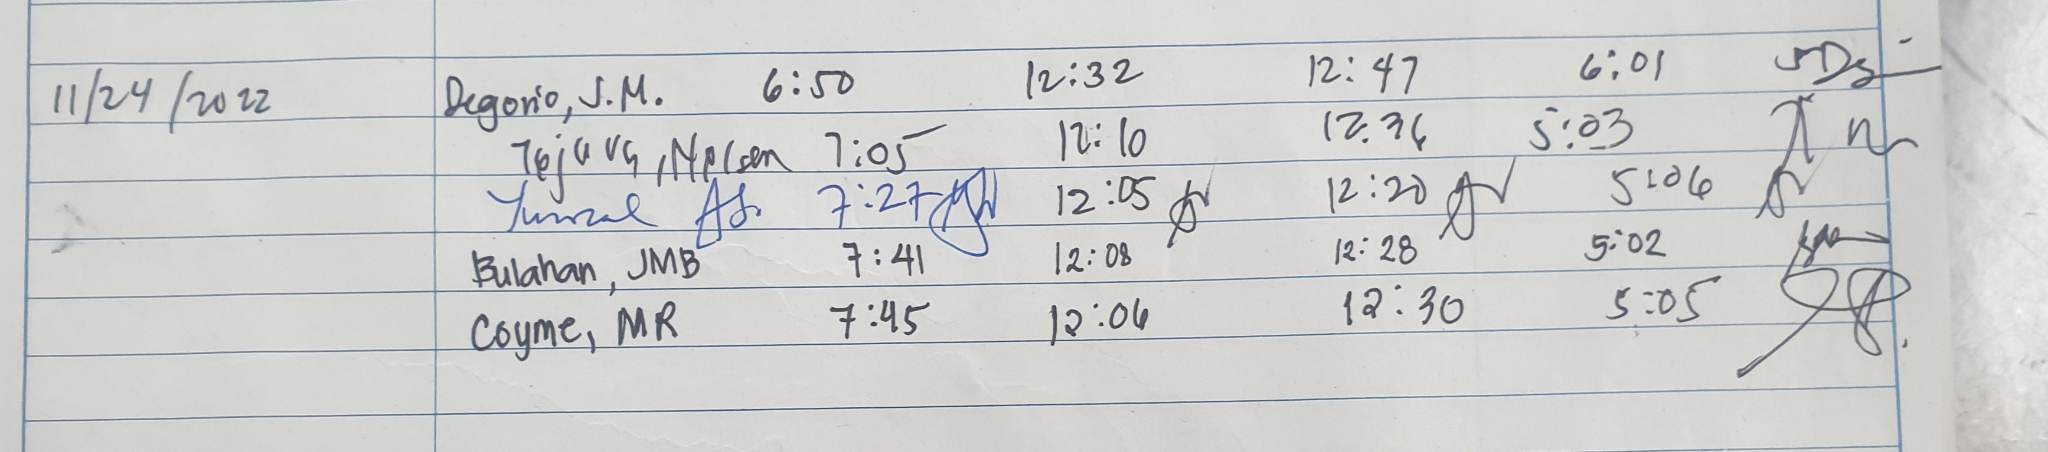 11/24/2022 Degorio, J.M. 6:50 12:32 12:47 6:01
7:05 12:10 12:36 5:03
AJ. 7:27 12:05 12:20 5:06
Bulahan, JMB 7:41 12:08 12:28 5:02
Coyme, MR 7:45 12:06 12:30 5:05